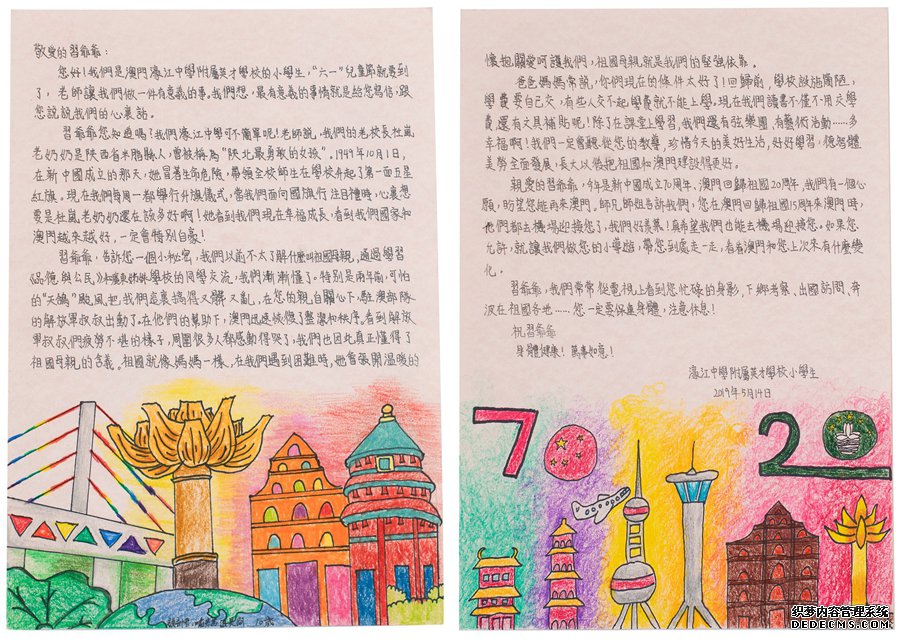 敬愛的習爺爺：
您好！我們是澳門濠江中學附屬英才學校的小學生，“六一”兒童節就要到
了，老師讓我們做一件有意義的事。我們想，最有意義的事情就是給您寫信，跟
您說說我們的心裏話。
習爺爺您知道嗎？我們濠江中學可不簡單呢！老師說，我們的老校長杜嵐
老奶奶是陝西省米脂縣人，曾被稱為“陝北最勇敢的女孩”。1949年10月1日，
在新中國成立的那天，她冒着生命危險，帶領全校師生在學校升起了第一面五星
紅旗。現在我們每周一都舉行升旗儀式，當我們面向國旗行注目禮時，心裏想
要是杜嵐老奶奶還在該多好啊！她看到我們現在幸福成長，看到我們國家和
澳門越來越好，一定會特別自豪！
習爺爺，告訴您一個小秘密，我們以前不太了解什麼叫祖國母親，通過學習
《品德與公民》和 學校的同學交流，我們漸漸懂了。特別是兩年前，可怕
的“天鴿”颱風把我們家裏搞得又髒又亂，在您的親自關心下，駐澳部隊
的解放軍叔叔出動了。在他們的幫助下，澳門迅速恢復了整潔和秩序。看到解放
軍叔叔們疲勞不堪的樣子，周圍很多人都感動得哭了，我們也因此真正懂得了
祖國母親的含義。祖國就像媽媽一樣，在我們遇到困難時，她會張開溫暖的
10歲
懷抱關愛呵護我們，祖國母親就是我們的堅強依靠。
爸爸媽媽常說，你們現在的條件太好了！回歸前，學校設施簡陋，
學費要自己交，有些人交不起學費就不能上學。現在我們讀書不僅不用交學
費還有文具補貼呢！除了在課堂上學習，我們還有弦樂團、有藝術活動……多
幸福啊！我們一定會聽從您的教導，珍惜今天的美好生活，好好學習，德智體
美勞全面發展，長大以後把祖國和澳門建設得更好。
親愛的習爺爺，今年是新中國成立70周年、澳門回歸祖國20周年，我們有一個心
願，盼望您能再來澳門。師兄師姐告訴我們，您在澳門回歸祖國15周年來澳門時，
他們都去機場迎接您了，我們好羨慕！真希望我們也能去機場迎接您。如果您
允許，就讓我們做您的小導遊，帶您到處走一走，看看澳門和您上次來有什麼變
化。
習爺爺，我們常常從電視上看到您忙碌的身影，下鄉考察、出國訪問、奔
波在祖國各地……您一定要保重身體，注意休息！
祝習爺爺
身體健康！萬事如意！
濠江中學附屬英才學校小學生
2019年5月14日
70
20
织梦内容管理系统
DEDECMS.COM